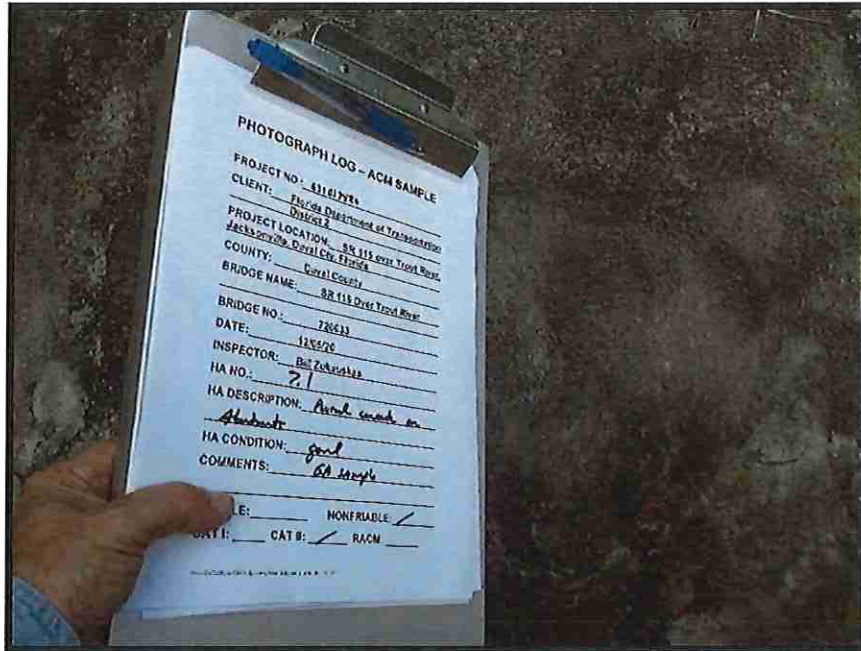 PHOTOGRAPH LOG – ACM SAMPLE
PROJECT NO:
CLIENT: Florida Department of Transportation
District 2
PROJECT LOCATION: SR 115 over Trout River,
Jacksonville, Duval Cty, Florida
COUNTY: Duval County
BRIDGE NAME: SR 115 Over Trout River
BRIDGE NO.: 720033
DATE: 12/05/20
INSPECTOR: Bill Zukauskas
HA NO.: 7.1
HA DESCRIPTION: on
Abutments
HA CONDITION: good
COMMENTS: sample
LE: NONFRIABLE: /
CAT I: CAT II: / RACM